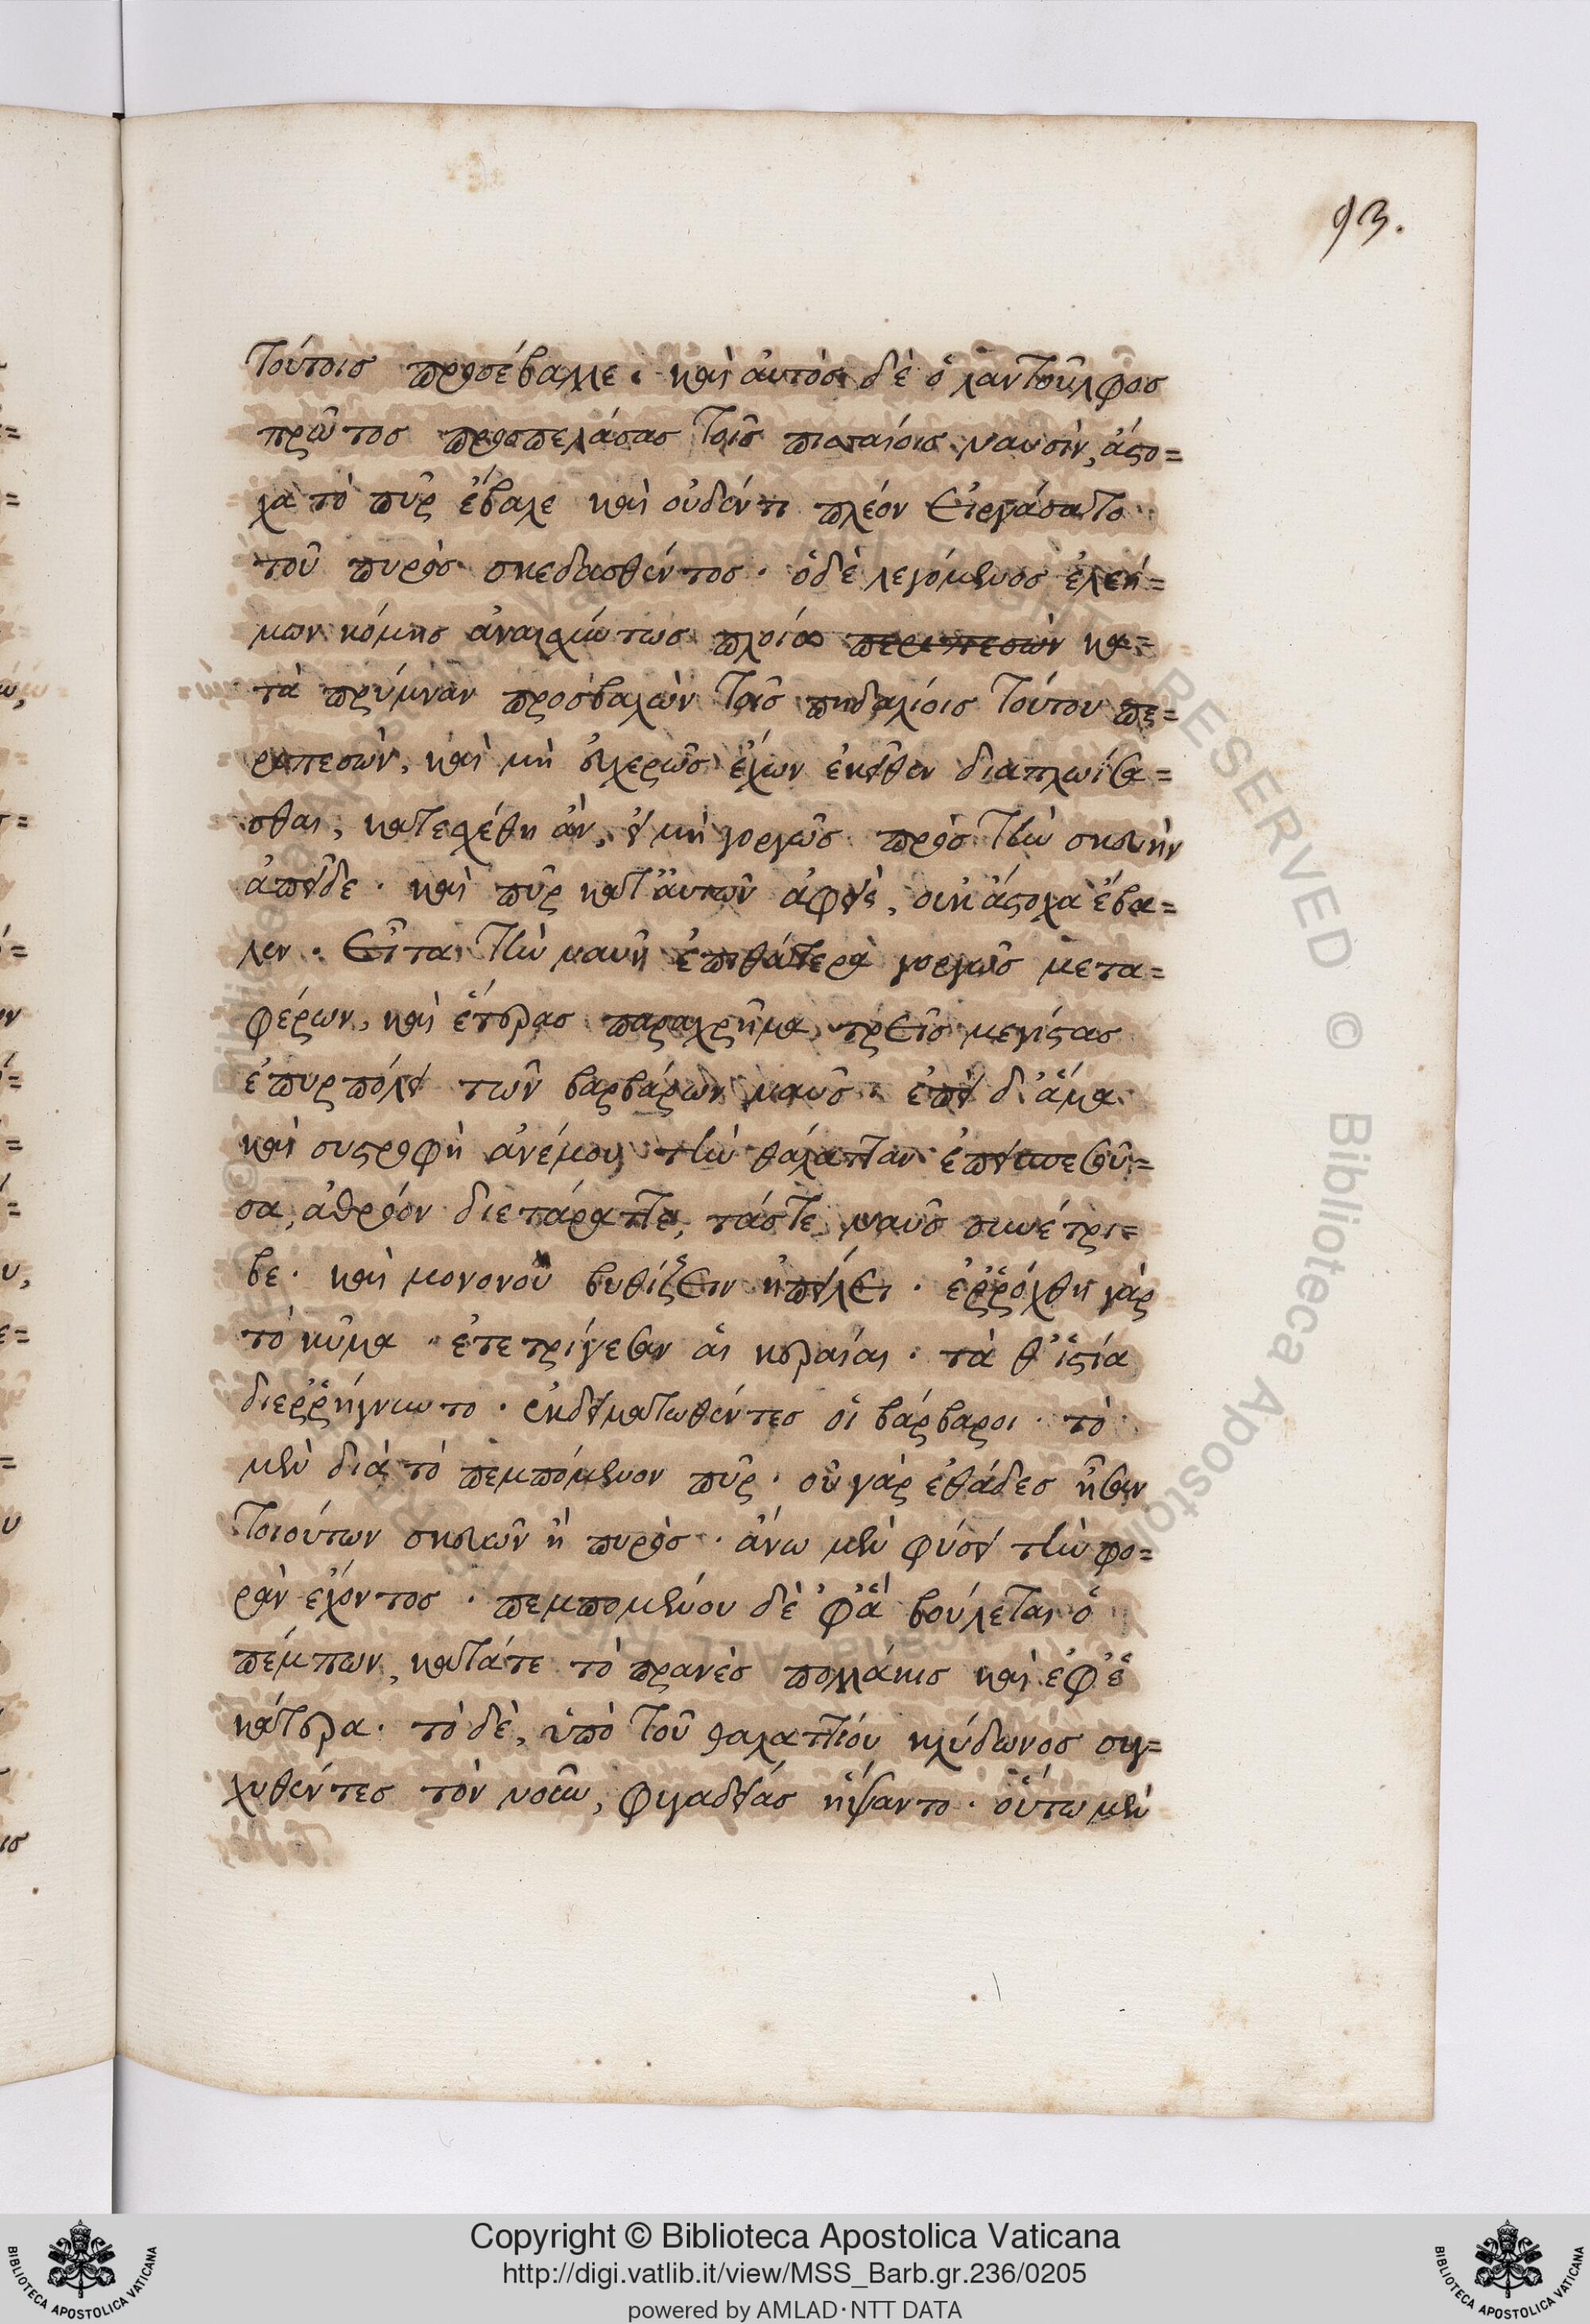 93.
τούτοις προσέβαλλε· καὶ αὐτὸς δὲ ὁ λαντοῦλφος
πρῶτος προσπελάσας τοῖς πισσαίοις ναυσὶν, ἄστο=
χα τὸ πῦρ ἔβαλε καὶ οὐδέν τι πλέον εἰργάσατο
τοῦ πυρὸς σκεδασθέντος· ὁ δὲ λεγόμενος ἐλεή=
μων κόμης ἀναισχύντως πλοίῳ περιπεσὼν κα=
τὰ πρύμναν προσβαλὼν τοῖς πηδαλίοις τούτου πε=
ριπεσὼν, καὶ μὴ εὐχερῶς ἔχων ἐκεῖθεν διαπλωίσα=
σθαι, κατεσχέθη ἂν, εἰ μὴ γοργῶς πρὸς τὴν σκευὴν
ἀπεῖδε· καὶ πῦρ κατ' αὐτῶν ἀφεὶς, οὐκ ἄστοχα ἔβα=
λεν· εἶτα τὴν ναῦν ἐπὶ θάτερα γοργῶς μετα=
φέρων, καὶ ἑτέρας παραχρῆμα τρεῖς μεγίστας
ἐπυρπόλει τῶν βαρβάρων ναῦς· ἐπεὶ δ' ἅμα
καὶ συστροφὴ ἀνέμου τὴν θάλατταν ἐπεισπεσοῦ=
σα, ἀθρόον διετάραττε, τάς τε ναῦς συνέτρι=
βε· καὶ μονονοὺ βυθίζειν ἠπείλει· ἐρρόχθη γὰρ
τὸ κῦμα· ἐτετρίγεσαν αἱ κεραίαι· τὰ θ' ἱστία
διερρήγνυντο· ἐκδειματωθέντες οἱ βάρβαροι· τὸ
μὲν διὰ τὸ πεμπόμενον πῦρ· οὐ γὰρ ἐθάδες ἦσαν
τοιούτων σκευῶν ἢ πυρὸς· ἄνω μὲν φύσει τὴν φο=
ρὰν ἔχοντος· πεμπομένου δὲ ἐφ' ἃ βούλεται ὁ
πέμπων, κατά τε τὸ πρανὲς πολλάκις καὶ ἐφ' ἑ
κάτερα· τὸ δὲ, ὑπὸ τοῦ θαλαττίου κλύδωνος συγ=
χυθέντες τὸν νοῦν, φυγαδείας ἥψαντο· οὕτω μὲν
Copyright © Biblioteca Apostolica Vaticana
http://digi.vatlib.it/view/MSS_Barb.gr.236/0205
powered by AMLAD·NTT DATA